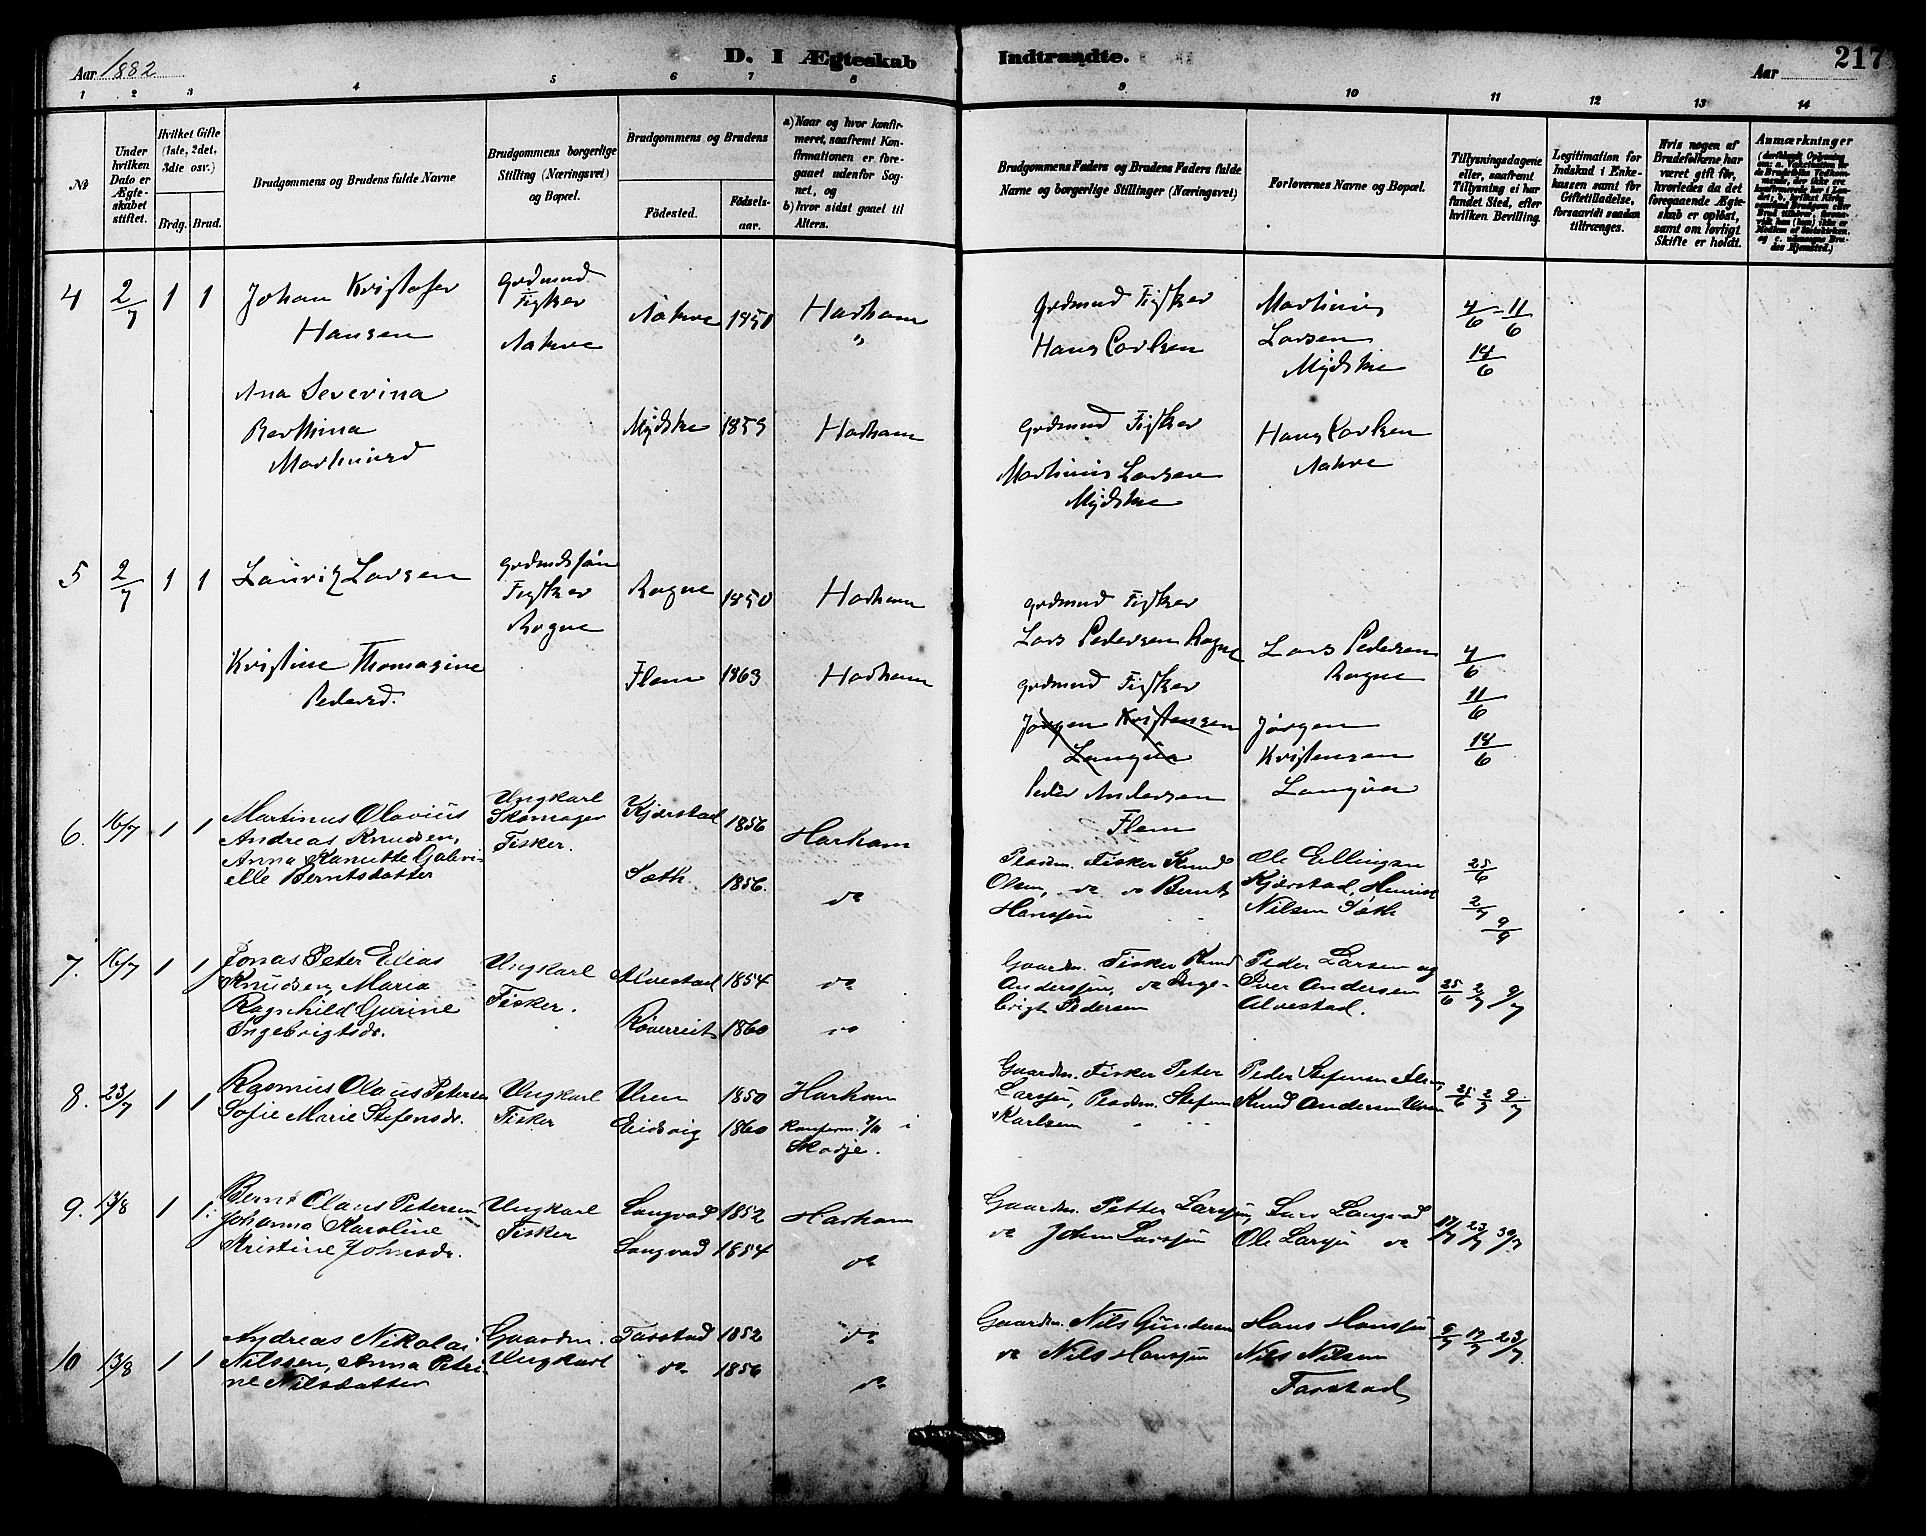 Aar 1882
D. I Ægteskab
Indtraadte.
Aar
217
1 2 3 4 5 6 7 8 9 10 11 12 13 14
No
Under hvilken Dato er Ægteskabet stiftet.
Hvilket Gifte (1ste, 2det, 3die osv.)
Brdg. Brud.
Brudgommens og Brudens fulde Navne
Brudgommens borgerlige Stilling (Næringsvei) og Bopæl.
Brudgommens og Brudens
Fødested.
Fødselsaar.
a) Naar og hvor konfirmeret, saafremt Konfirmationen er foregaaet udenfor Sognet, og
b) hvor sidst gaaet til Alters.
Brudgommens Faders og Brudens Faders fulde Navne og borgerlige Stillinger (Næringsvei)
Forlovernes Navne og Bopæl.
Tillysningsdagene eller, saafremt Tillysning ei har fundet Sted, efter hvilken Bevilling.
Legitimation for Indskud i Enkekassen samt for Giftetilladelse, forsaavidt saadan tiltrænges.
Hvis nogen af Brudefolkene har været gift før, hvorledes da det foregaaende Ægteskab er opløst, samt om lovligt Skifte er holdt.
Anmærkninger
4 2/7 1 1
Johan Kristofer
Hansen
Grdmand
Fisker
Aakre
Aakre 1851 Harham
"
Grdmand Fisker
Hans Carlsen
Martinus
Larsen
Mydske
4/6 - 11/6
18/6
Ana Severina
Berthina
Martinusd
Mydske 1859 Harham
Grdmand Fisker
Martinus Larsen
Mydske
Hans Carlsen
Aakre
5 2/7 1 1
Lauritz Larsen
Grdmandssøn
Fisker
Rogne
Rogne 1850 Harham
Grdmand Fisker
Lars Pedersen Rogne
Lars Pedersen
Rogne
4/6
11/6
18/6
Kristine Thomasine
Pedersd.
Flem 1863 Harham
Grdmand Fisker
Jørgen Kristensen
Langva
Peder Andersen
Flem
Jørgen
Kristensen
Langva
6. 16/7 1 1
Martinus Olavius
Andreas Knudsen,
Anna Kanutte Golevi-
elle Berntsdatter
Ungkarl
Skomager
Fisker.
Kjerstad 1856 Harham
Sæth 1856. do
Pladsm. Fisker Knud
Olsen, do do Bernt
Hanssøn
Ole Ellingsen
Kjerstad, Henrik
Nilsen Sæth
25/6
2/7
9/7
7. 16/7 1 1
Jonas Peter Elias
Knudsen, Maria
Ragnhild Gurine
Ingebrigtsdr.
Ungkarl
Fisker.
Alvestad 1854 do
Røverreit 1860 do
Gaardm. Fisker Knud
Anderssøn, do Inge-
brigt Pedersen
Peder Larsen og
Iver Andersen
Alvestad.
25/6 2/7 9/7
8. 23/7 1 1
Rasmus Olaus Petersen
Sofie Marie Stefensdr.
Ungkarl
Fisker
Uren 1850 Harham
Eidsvig 1860
Skodje.
Gaardm. Fisker Peter
Larssøn, Pladsm. Stefen
Karlsen
Peder Stefensen Flem,
Knud Andersen Uren
25/6 2/7 9/7
9. 13/8 1 1.
Bernt Olaus Petersen
Johanna Karoline
Kristine Johnsdr.
Ungkarl
Fisker
Longvad 1852 Harham
Longvad 1854 do
Gaardm. Petter Larssøn,
do John Larssøn
Lars Longvad
Ole Larsen do
17/7 23/7 30/7
10 13/8 1 1
Andreas Nikolai
Nilssen, Anna Petri-
ne Nilsdatter
Gaardm.
Ungkarl
Farstad 1852 do
do 1856 do
Gaardm. Nils Gundersen
do Nils Hanssøn
Hans Hanssøn
Nils Nilsen
Farstad
9/7 17/7 23/7